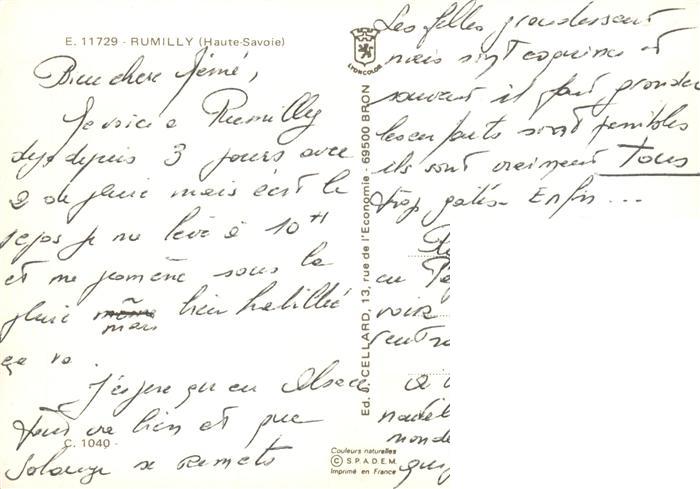 E. 11729 - RUMILLY (Haute-Savoie)
Bien chère Mémé,
Je voici à Rumilly
depuis 3 jours avec
de la pluie mais c'est le
repos je me lève à 10 H
et me promène sous la
pluie mais bien habillée
ça va.
J'espère qu'en Alsace
tout va bien et que
Solange se remets
C. 1040 -
LYONCOLOR
Ed. CELLARD, 13, rue de l'Economie - 69500 BRON
Couleurs naturelles
© S.P.A.D.E.M.
Imprimé en France
Les filles grandissent
mais sont coquines et
souvent il faut gronder
les enfants sont pénibles
ils sont vraiment Tous
trop gatés - Enfin ...
au
voir
rentr